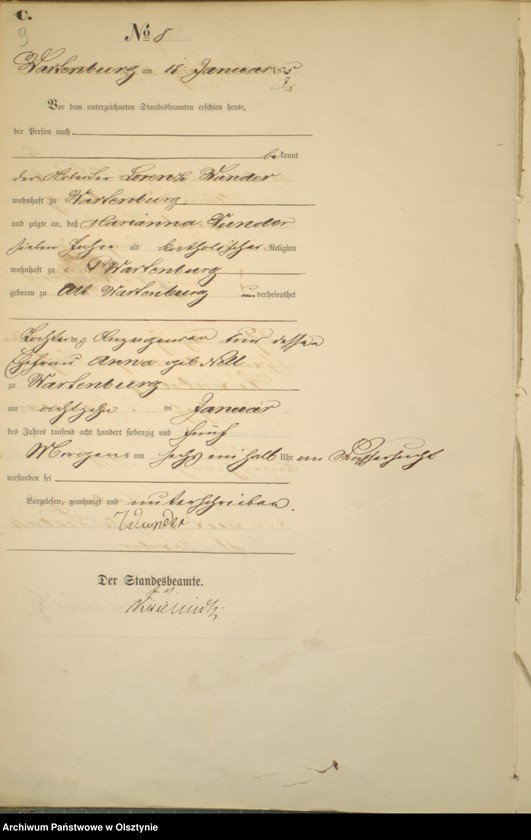 C.
9
No 8
Wartenburg am 18 Januar 1875
Vor dem unterzeichneten Standesbeamten erschien heute,
der Person nach
bekannt
der Arbeiter Lorenz Wunder
wohnhaft zu Wartenburg
und zeigte an, daß Marianna Wunder
sieben Jahre alt katholischer Religion
wohnhaft zu Wartenburg
geboren zu Alt Wartenburg unverheirathet
Tochter des Anzeigenden und dessen
Ehefrau Anna geb.
zu Wartenburg
am achtzehn im Januar
des Jahres tausend acht hundert siebenzig und fünf
Morgens um sechs ein halb Uhr an Wassersucht
verstorben sei
Vorgelesen, genehmigt und unterschrieben.
Wunder
Der Standesbeamte.
Archiwum Państwowe w Olsztynie